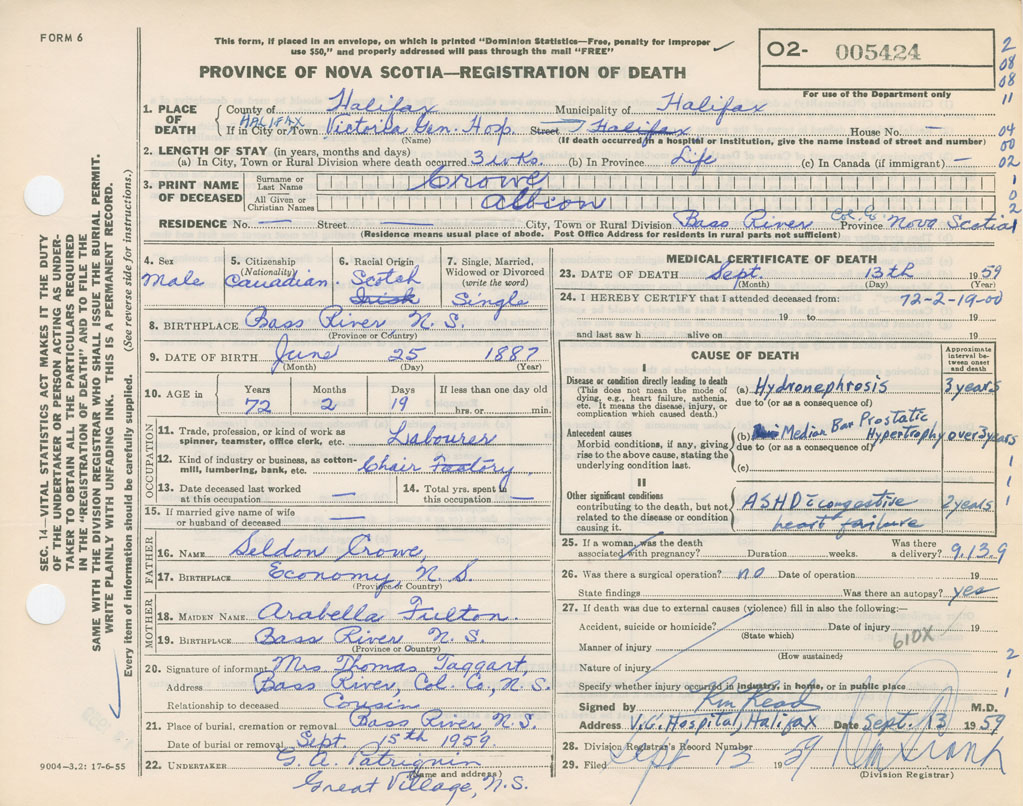 FORM 6
This form, if placed in an envelope, on which is printed "Dominion Statistics—Free, penalty for improper
use $50," and properly addressed will pass through the mail "FREE"
PROVINCE OF NOVA SCOTIA—REGISTRATION OF DEATH
O2- 005424
For use of the Department only
2
08
08
11
04
00
02
1
0
2
1. PLACE OF DEATH
County of Halifax Municipality of Halifax
If in City or Town HALIFAX Victoria Gen. Hosp. Street Halifax House No. —
(Name) (If death occurred in a hospital or institution, give the name instead of street and number)
2. LENGTH OF STAY (in years, months and days)
(a) In City, Town or Rural Division where death occurred 3 wks. (b) In Province Life (c) In Canada (if immigrant) —
3. PRINT NAME OF DECEASED
Surname or Last Name Crowe
All Given or Christian Names Albion
RESIDENCE No. — Street — City, Town or Rural Division Bass River Col. Co. Province Nova Scotia
(Residence means usual place of abode. Post Office Address for residents in rural parts not sufficient)
4. Sex
Male
5. Citizenship (Nationality)
Canadian
6. Racial Origin
Scotch
Irish
7. Single, Married, Widowed or Divorced (write the word)
Single
8. BIRTHPLACE Bass River, N. S.
(Province or Country)
9. DATE OF BIRTH June 25 1887
(Month) (Day) (Year)
10. AGE in
Years Months Days If less than one day old
72 2 19 hrs. or min.
OCCUPATION
11. Trade, profession or kind of work as spinner, teamster, office clerk, etc. Labourer
12. Kind of industry or business, as cotton-mill, lumbering, bank, etc. Chair Factory
13. Date deceased last worked at this occupation —
14. Total yrs. spent in this occupation —
15. If married give name of wife or husband of deceased —
FATHER
16. NAME Seldon Crowe,
17. BIRTHPLACE Economy, N. S.
(Province or Country)
MOTHER
18. MAIDEN NAME Arabella Fulton.
19. BIRTHPLACE Bass River, N. S.
(Province or Country)
20. Signature of informant Mrs Thomas Taggart,
Address Bass River, Col. Co., N. S.
Relationship to deceased Cousin
21. Place of burial, cremation or removal Bass River N. S.
Date of burial or removal Sept. 15th 1959.
22. UNDERTAKER
(Name and address)
Great Village, N. S.
MEDICAL CERTIFICATE OF DEATH
23. DATE OF DEATH Sept. 13th 1959
(Month) (Day) (Year)
24. I HEREBY CERTIFY that I attended deceased from: 72-2-19-00
19 to 19
and last saw h alive on 19
CAUSE OF DEATH
Approximate interval between onset and death
I
Disease or condition directly leading to death
(This does not mean the mode of dying, e.g., heart failure, asthenia, etc. It means the disease, injury, or complication which caused death.)
(a) Hydronephrosis 3 years
due to (or as a consequence of)
Antecedent causes
Morbid conditions, if any, giving rise to the above cause, stating the underlying condition last.
(b) Median Bar Prostatic
Hypertrophy over 3 years
due to (or as a consequence of)
(c)
II
Other significant conditions
contributing to the death, but not related to the disease or condition causing it.
ASHD c̄ congestive
heart failure
2 years
1
1
1
25. If a woman, was the death associated with pregnancy? Duration weeks. Was there a delivery? 9.13.9
26. Was there a surgical operation? no Date of operation 19
State findings Was there an autopsy? yes
27. If death was due to external causes (violence) fill in also the following:—
Accident, suicide or homicide? Date of injury 19
(State which)
610X
Manner of injury
(How sustained)
2
1
Nature of injury
Specify whether injury occurred in industry, in home, or in public place
1
Signed by M.D.
Address V.G. Hospital, Halifax Date Sept. 13 1959
28. Division Registrar's Record Number
29. Filed Sept 13 1959
(Division Registrar)
9004-3.2: 17-6-55
SEC. 14—VITAL STATISTICS ACT MAKES IT THE DUTY
OF THE UNDERTAKER OR PERSON ACTING AS UNDER-
TAKER TO OBTAIN ALL THE PARTICULARS REQUIRED
IN THE "REGISTRATION OF DEATH" AND TO FILE THE
SAME WITH THE DIVISION REGISTRAR WHO SHALL ISSUE THE BURIAL PERMIT.
WRITE PLAINLY WITH UNFADING INK. THIS IS A PERMANENT RECORD.
Every item of information should be carefully supplied. (See reverse side for instructions.)